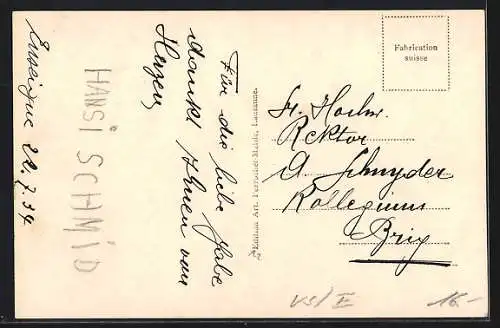 Euseigne 22.7.34
HANSi SCHMiD
Für die liebe Gabe
dankt Ihnen von
Herzen,
Edition Art. Perrochet-Matile, Lausanne.
Fabrication
suisse
Sr. Hochw.
Rektor
A. Schnyder
Kollegium
Brig
VS/E
16.-